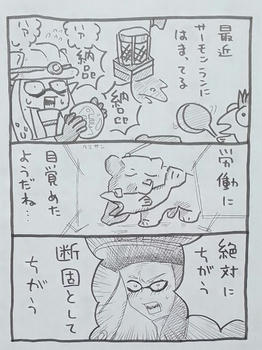 最近
サーモンランに
はまってる
納品
納品
ハァ
ハァ
労働に
目覚めた
ようだね…
クマサン
絶対に
ちがう
断固として
ちがう